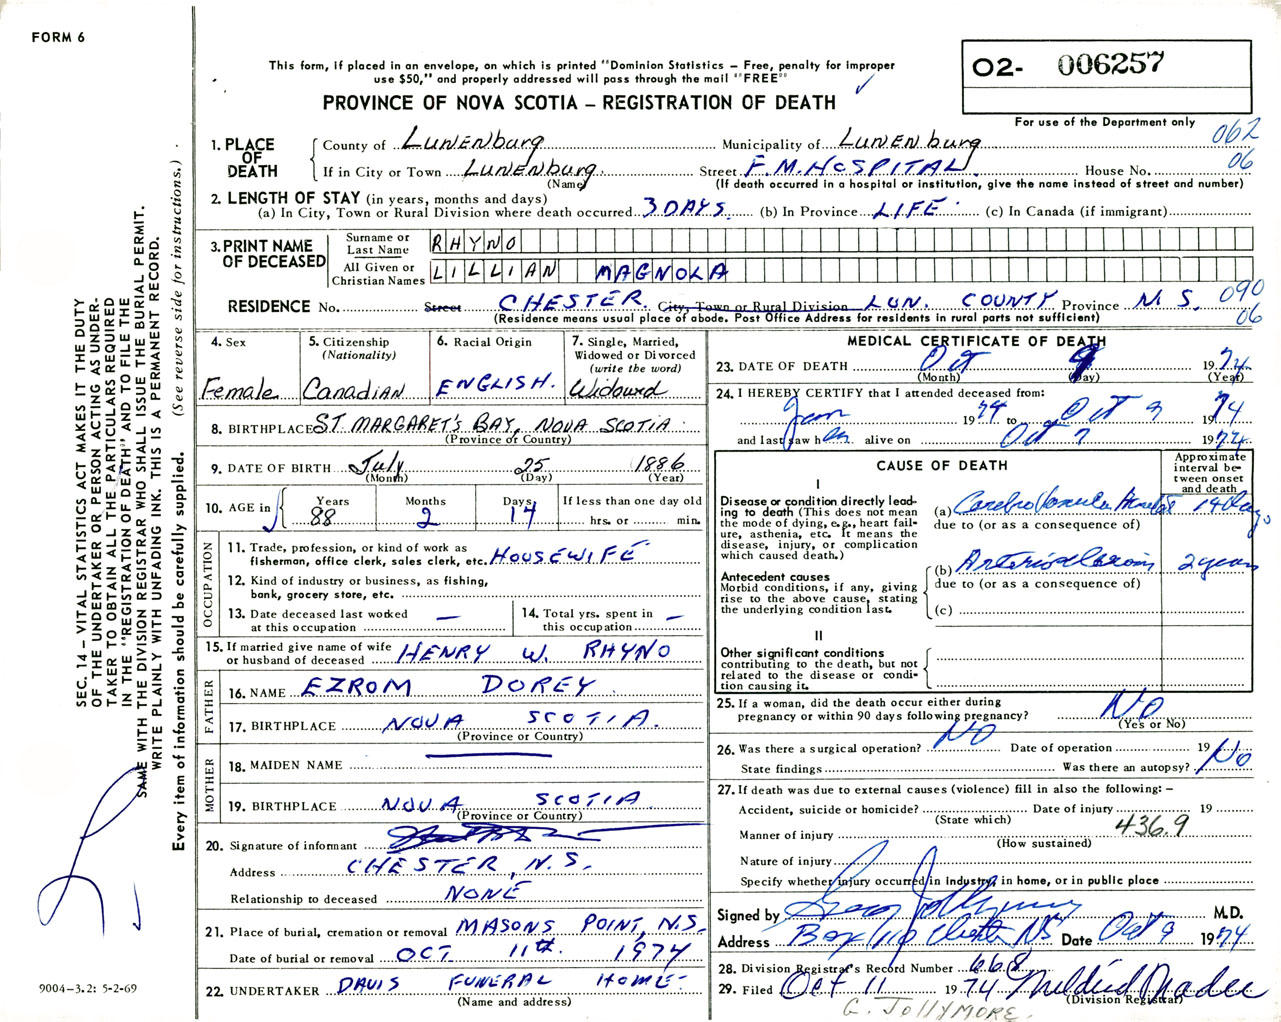 FORM 6
This form, if placed in an envelope, on which is printed "Dominion Statistics – Free, penalty for improper
use $50," and properly addressed will pass through the mail "FREE"
PROVINCE OF NOVA SCOTIA – REGISTRATION OF DEATH
O2- 006257
For use of the Department only
062
06
1. PLACE OF DEATH
County of Lunenburg Municipality of Lunenburg
If in City or Town Lunenburg Street F.M. HOSPITAL House No.
(Name) (If death occurred in a hospital or institution, give the name instead of street and number)
2. LENGTH OF STAY (in years, months and days)
(a) In City, Town or Rural Division where death occurred 3 DAYS (b) In Province LIFE (c) In Canada (if immigrant)
3. PRINT NAME OF DECEASED
Surname or Last Name RHYNO
All Given or Christian Names LILLIAN MAGNOLA
RESIDENCE No. Street CHESTER City, Town or Rural Division LUN. COUNTY Province N.S. 090
06
(Residence means usual place of abode. Post Office Address for residents in rural parts not sufficient)
4. Sex
Female
5. Citizenship
(Nationality)
Canadian
6. Racial Origin
ENGLISH.
7. Single, Married,
Widowed or Divorced
(write the word)
Widowed
8. BIRTHPLACE ST. MARGARET'S BAY, NOVA SCOTIA
(Province or Country)
9. DATE OF BIRTH July 25 1886
(Month) (Day) (Year)
10. AGE in Years Months Days If less than one day old
88 2 14 hrs. or min.
OCCUPATION
11. Trade, profession, or kind of work as
fisherman, office clerk, sales clerk, etc. HOUSEWIFE
12. Kind of industry or business, as fishing,
bank, grocery store, etc.
13. Date deceased last worked
at this occupation —
14. Total yrs. spent in
this occupation —
15. If married give name of wife
or husband of deceased HENRY W. RHYNO
FATHER
16. NAME EZROM DOREY
17. BIRTHPLACE NOVA SCOTIA.
(Province or Country)
MOTHER
18. MAIDEN NAME —
19. BIRTHPLACE NOVA SCOTIA
(Province or Country)
20. Signature of informant
Address CHESTER, N.S.
Relationship to deceased NONE
21. Place of burial, cremation or removal MASONS POINT, N.S.
Date of burial or removal OCT. 11th. 1974
22. UNDERTAKER DAVIS FUNERAL HOME
(Name and address)
MEDICAL CERTIFICATE OF DEATH
23. DATE OF DEATH Oct 9 1974
(Month) (Day) (Year)
24. I HEREBY CERTIFY that I attended deceased from:
Jan 1974 to Oct 9 1974
and last saw her alive on Oct 7 1974
CAUSE OF DEATH
Approximate
interval be-
tween onset
and death
I
Disease or condition directly lead-
ing to death (This does not
mean the mode of dying, e.g., heart fail-
ure, asthenia, etc. It means the
disease, injury, or complication
which caused death.)
(a) Cerebro Vascular 14 days
due to (or as a consequence of)
Antecedent causes
Morbid conditions, if any, giving
rise to the above cause, stating
the underlying condition last.
(b) Arteriosclerosis 2 years
due to (or as a consequence of)
(c)
II
Other significant conditions
contributing to the death, but not
related to the disease or condi-
tion causing it.
25. If a woman, did the death occur either during
pregnancy or within 90 days following pregnancy? No
(Yes or No)
26. Was there a surgical operation? No Date of operation 19
State findings Was there an autopsy? No
27. If death was due to external causes (violence) fill in also the following: –
Accident, suicide or homicide? Date of injury 19
(State which)
436.9
Manner of injury
(How sustained)
Nature of injury
Specify whether injury occurred in industry, in home, or in public place
Signed by M.D.
Address Box 110 Chester NS Date Oct 9 1974
28. Division Registrar's Record Number 668
29. Filed Oct 11 1974 Mildred Nader
(Division Registrar)
G. JOLLYMORE.
SEC. 14 – VITAL STATISTICS ACT MAKES IT THE DUTY
OF THE UNDERTAKER OR PERSON ACTING AS UNDER-
TAKER TO OBTAIN ALL THE PARTICULARS REQUIRED
IN THE "REGISTRATION OF DEATH" AND TO FILE THE
SAME WITH THE DIVISION REGISTRAR WHO SHALL ISSUE THE BURIAL PERMIT.
WRITE PLAINLY WITH UNFADING INK. THIS IS A PERMANENT RECORD.
Every item of information should be carefully supplied. (See reverse side for instructions.)
9004-3.2: 5-2-69